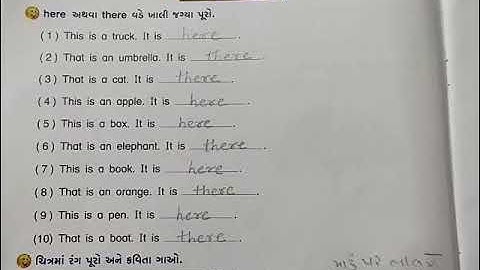 here અથવા there વડે ખાલી જગ્યા પૂરો.
(1) This is a truck. It is here.
(2) That is an umbrella. It is there.
(3) That is a cat. It is there.
(4) This is an apple. It is here.
(5) This is a box. It is here.
(6) That is an elephant. It is there.
(7) This is a book. It is here.
(8) That is an orange. It is there.
(9) This is a pen. It is here.
(10) That is a boat. It is there.
ચિત્રમાં રંગ પૂરો અને કવિતા ગાઓ.